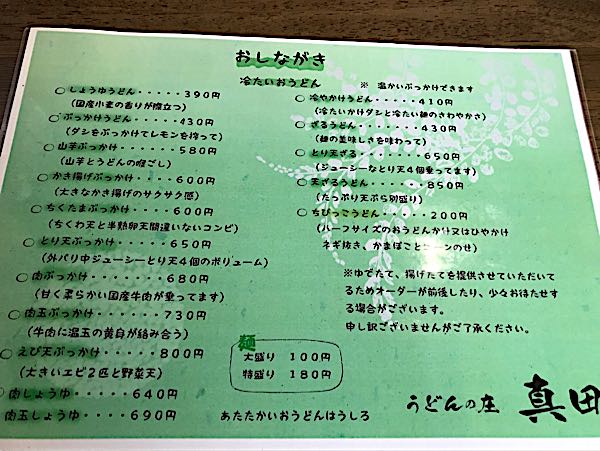 おしながき
冷たいおうどん
※ 温かいぶっかけできます
○しょうゆうどん・・・・・390円
(国産小麦の香りが際立つ)
○ぶっかけうどん・・・・・430円
(ダシをぶっかけてレモンを搾って)
○山芋ぶっかけ・・・・・・580円
(山芋とうどんの喉ごし)
○かき揚げぶっかけ・・・・600円
(大きなかき揚げのサクサク感)
○ちくたまぶっかけ・・・・600円
(ちくわ天と半熟卵天間違いないコンビ)
○とり天ぶっかけ・・・・・650円
(外パリ中ジューシーとり天4個のボリューム)
○肉ぶっかけ・・・・・・・680円
(甘く柔らかい国産牛肉が乗ってます)
○肉玉ぶっかけ・・・・・・730円
(牛肉に温玉の黄身が絡み合う)
○えび天ぶっかけ・・・・・800円
(大きいエビ2匹と野菜天)
○肉しょうゆ・・・・・・640円
○肉玉しょうゆ・・・・・690円
○冷やかけうどん・・・・・410円
(冷たいかけダシと冷たい麺のさわやかさ)
○ざるうどん・・・・・・・430円
(麺の美味しさを味わって)
○とり天ざる・・・・・・・650円
(ジューシーなとり天4個乗ってます)
○天ざるうどん・・・・・・850円
(たっぷり天ぷら別盛り)
○ちびっこうどん・・・・・200円
(ハーフサイズのおうどんかけ又はひやかけ
ネギ抜き、かまぼことコーンのせ)
※ゆでたて、揚げたてを提供させていただいて
るためオーダーが前後したり、少々お待たせす
る場合がございます。
申し訳ございませんがご了承ください。
麺
大盛り 100円
特盛り 180円
あたたかいおうどんはうしろ
うどんの庄 真田